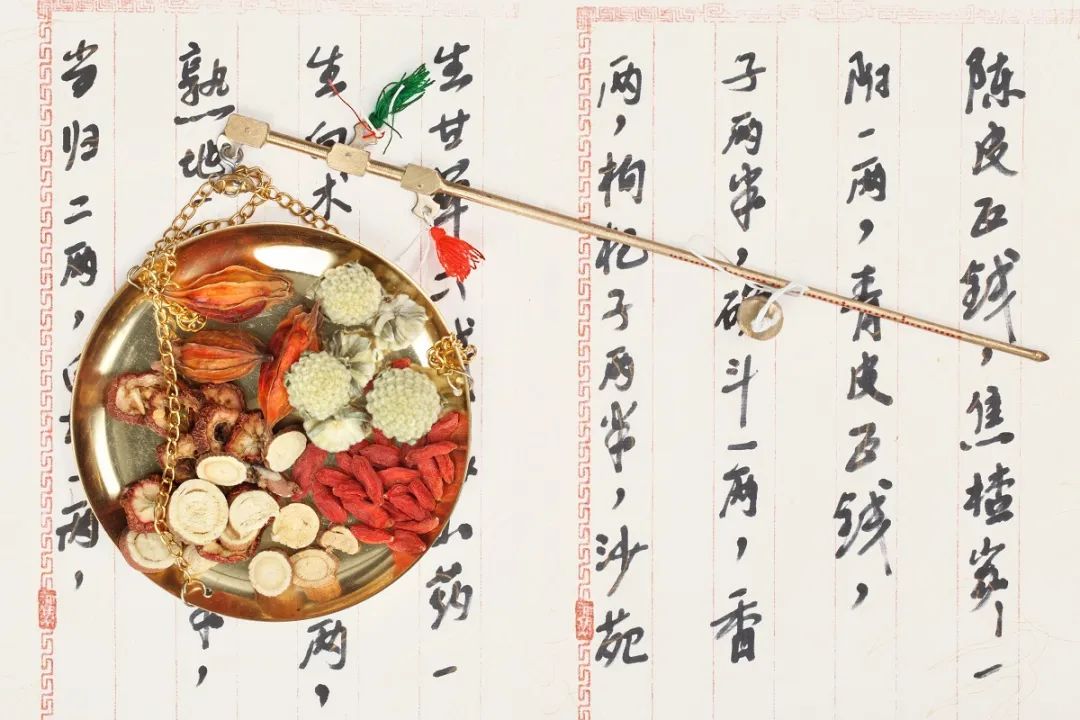 当归二两，一两，
熟地半，
生白术两，
生甘草药一
两，枸杞子两半，沙苑
子两半，斗一两，香
附一两，青皮五钱，
陈皮五钱，焦楂炭一